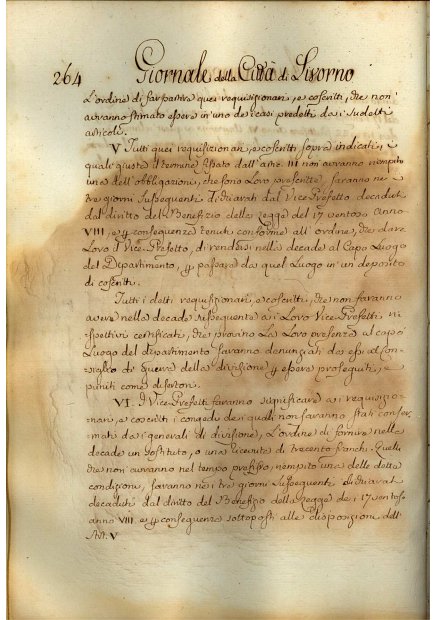 264 Giornale della Città di Livorno
L'ordine di far partire quei requisizionari, e coscritti, che non
avranno stimato essere in uno de casi predetti dai sudetti
articoli.
V Tutti quei requisizionari, e coscritti sopra indicati, i
quali giusta il termine fissato dall'art. III non avranno riempito
una dell'obbligazioni, che sono Loro prescritte, saranno ne
tre giorni susseguenti dichiarati dal Vice Prefetto decaduti
dal diritto del Benefizio della Legge del 17 ventoso Anno
VIII, e per conseguenza tenuti conforme all'ordine, che dare
Loro il Vice-Prefetto, di rendersi nella decade al Capo Luogo
del Dipartimento, per passare da quel Luogo in un deposito
di coscritti.
Tutti i detti requisizionari, e coscritti, che non faranno
avere nella decade susseguente ai Loro Vice-Prefetti ri-
spettivi certificati, che provino La Loro presenza al capo
Luogo del dipartimento saranno denunziati da essi al con-
siglio di guerra della divisione per essere proseguiti, e
puniti come desertori.
VI. I Vice-Prefetti faranno significare ai requisizio-
nari, e coscritti i congedi de quali non saranno stati confer-
mati da generali di divisione, L'ordine di fornire nella
decade un sostituto, o una licenza di trecento franchi. Quelli
che non avranno nel tempo prefisso, riempito una delle dette
condizioni, saranno nei tre giorni susseguenti dichiarati
decaduti dal diritto del Benefizio della Legge dei 17 ventoso
anno VIII. e per conseguenza sottoposti alle disposizioni dell'
Art. V